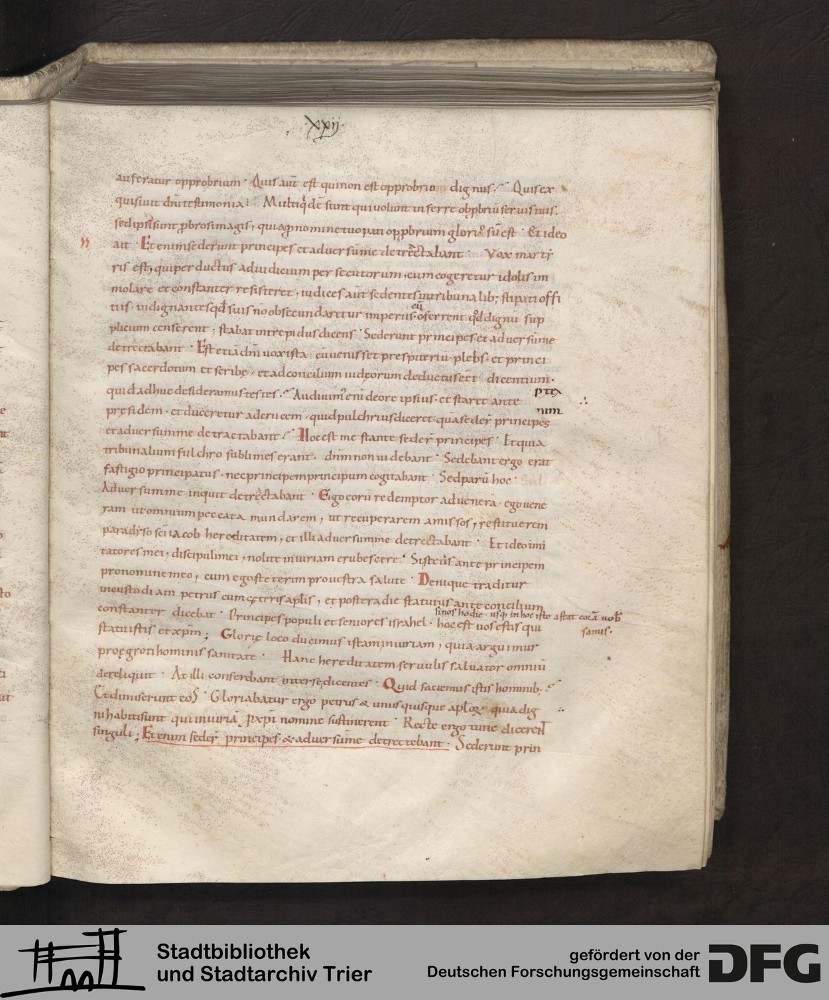 ·xxij·
auferatur opprobrium · Quis aut̄ est qui non est opprobrio dignus ; Quis ex
quisiuit dn̄i testimonia ; Multi qˈdē sunt qui uolunt inferre obprbriū seruis tuis.
sed ipsi sunt ꝓbrosi magis, quia ꝓ nomine tuo pati opꝓbrium glorię suę est · Et ideo
ait · Etenim sederunt principes et aduersū me detrectabant · Vox marty
ris est, qui perductus ad iudicium persecutorum, cum cogeretur idolis im
molare et constanter resisteret, iudices aut̄ sedentes in tribunalib; stipati offi
tiis · indignantes qd̄ suis n̄ obsecundaretur imperiis · eū
offerrent qd̄ dignū sup
plicium censerent ; stabat intrepidus dicens · Sederunt principes et aduersū me
detrectabant · Est etiā dn̄i uox ista, cū uenisset prespiteriū plebis · et princi
pes sacerdotum et scribe · et ad concilium iudęorum deductus eēt dicentium ·
quid adhuc desideramus testes ; Audiuimˀ enī de ore ipsius · et staret ante
presidem · et duceretur ad crucem · quid pulchrius diceret quā seder̄ principes
ptex
num
et aduersum me detractabant ; Hoc est me stante seder̄ principes · Et quia
tribunalium fulchro sublimes erant · dn̄m non uidebant · Sedebant ergo erāt
fastigio principatus · nec principem principum cogitabant · Sed parū hoc ·
Aduersum me inquit detrectabant · Ego eorū redemptor adueneram · ego uene
ram ut omnium peccata mundarem, ut recuperarem amissos, restituerem
paradyso sc̄i iacob hereditatem, et illi aduersum me detrectabant · Et ideo imi
tatores mei, discipuli mei, nolite iniuriam erubescere · Sisteris ante principem
pro nomine meo, cum ego steterim pro uestra salute · Denique traditur
in custodiam petrus cum cęteris apl̄is, et postera die statutus ante concilium
constanter dicebat · Principes populi et seniores israhel ·
si nos hodie · usq; in hoc iste astat corā uob̄
sanus ·
hoc est uos estis qui
statuistis et xp̄m ; Glorię loco ducimus istam iniuriam, quia arguimur
pro ęgroti hominis sanitate · Hanc hereditatem seruulis saluator omniū
dereliquit · At illi conferebant inter se dicentes · Quid faciemus istis hominib; ·
Et dimiserunt eos · Gloriabatur ergo petrus & unusquisque apl̄oꝝ quia dig
ni habiti sunt qui iniuriā ꝓ xp̄i nomine sustinerent · Recte ergo tunc dicerent
singuli ; Etenim seder̄ principes & aduersū me detrectebant · Sederunt prin
Stadtbibliothek
und Stadtarchiv Trier
gefördert von der
Deutschen Forschungsgemeinschaft
DFG